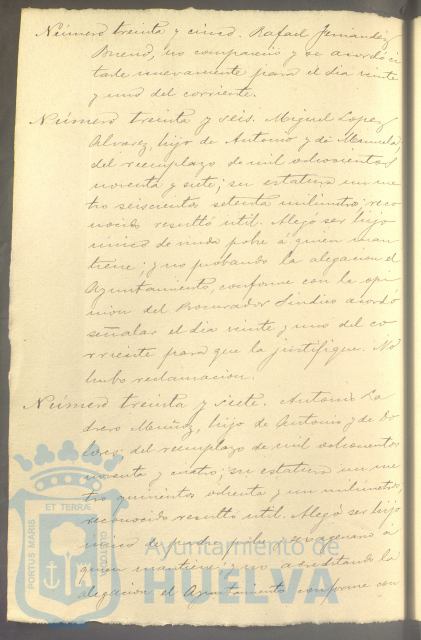 Número treinta y cinco. Rafael Fernández
Bueno, no compareció y se acordó ci
tarle nuevamente para el dia veinte
y uno del corriente.
Número treinta y seis. Miguel Lopez
Alvarez, hijo de Antonio y de Manuela,
del reemplazo de mil ochocientos
noventa y siete; su estatura un me
tro seiscientos setenta milimetros; reco
nocido resultó util. Alegó ser hijo
único de viuda pobre á quien man
tiene; y no probando la alegacion el
Ayuntamiento, conforme con la opi
nion del Procurador Sindico acordó
señalar el dia veinte y uno del co
rriente para que la justifique. No
hubo reclamacion.
Número treinta y siete. Antonio La
drero Muñoz, hijo de Antonio y de Do
lores, del reemplazo de mil ochocientos
noventa y cuatro; su estatura un me
tro quinientos ochenta y un milimetros,
reconocido resultó util. Alegó ser hijo
único de padre pobre y sexagenario á
quien mantiene; y no acreditando la
alegacion el Ayuntamiento conforme con
Ayuntamiento de
HUELVA
PORTUS MARIS
ET TERRÆ
CUSTODIA